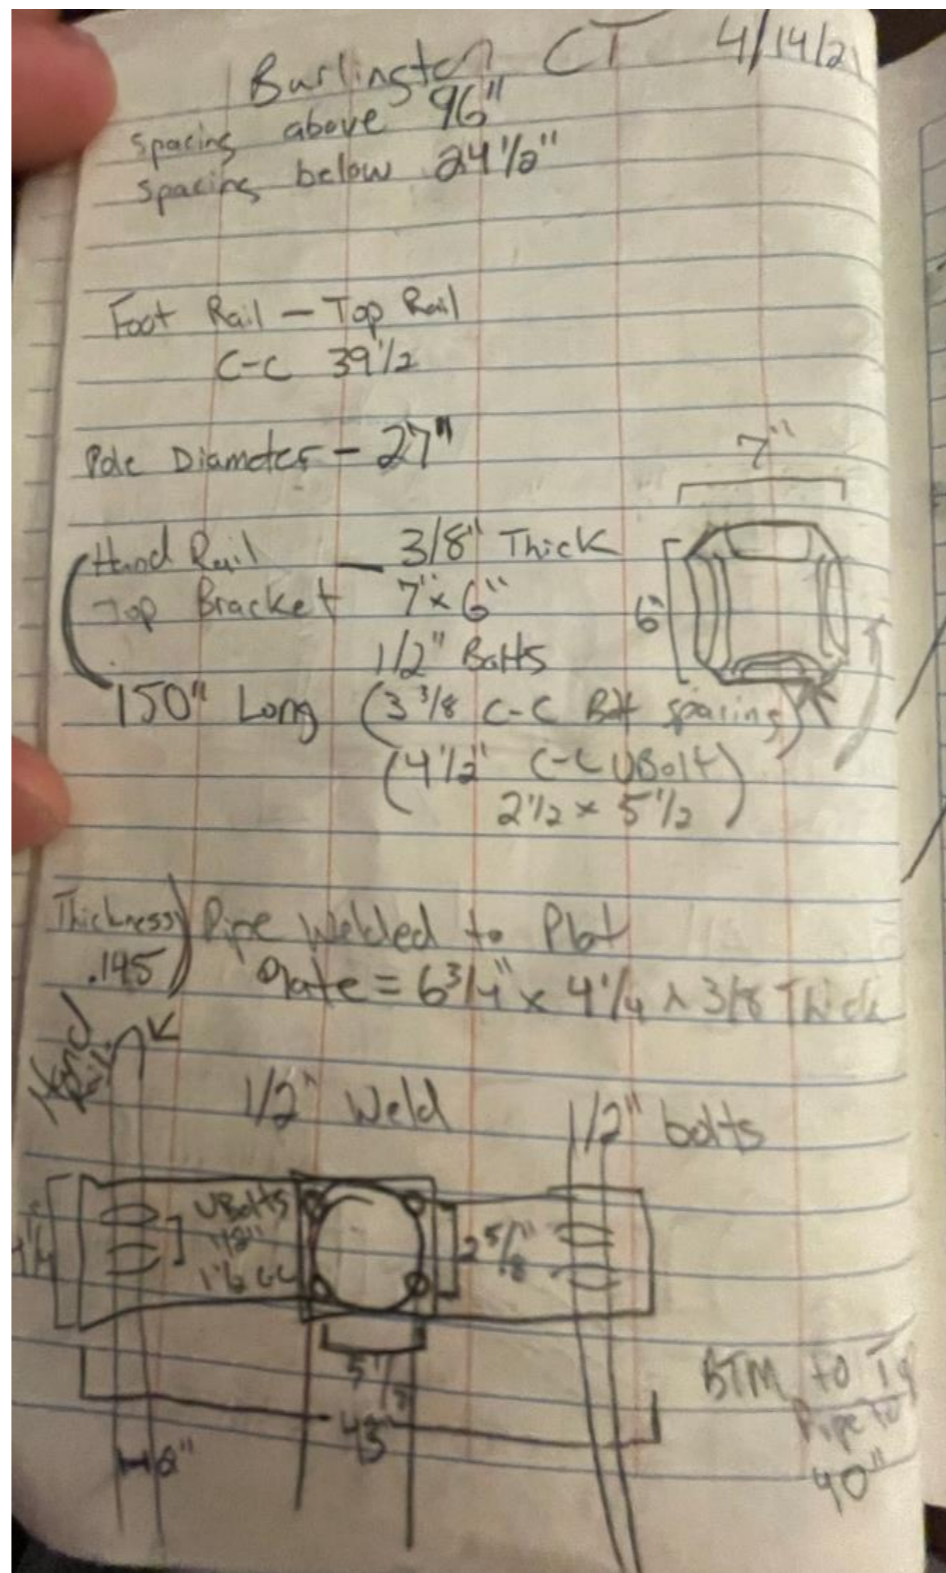 Burlington CT 4/14/21
Spacing above 96"
Spacing below 24 1/2"
Foot Rail — Top Rail
C-C 39 1/2
Pole Diameter — 27"
7"
Hand Rail — 3/8" Thick
Top Bracket 7" x 6"
6"
1/2" Bolts
150" Long (3 3/8 C-C Bolt spacing)
(4 1/2" C-C UBolt)
2 1/2 x 5 1/2
Thickness) Pipe Welded to Plat
.145 Plate = 6 3/4" x 4 1/4 x 3/8 Thick
Hand
Rail
1/2" Weld
1/2" bolts
UBolts
1/2"
C-C
2 5/8"
5 1/2
43"
2"
BTM to Top
Pipe to
40"